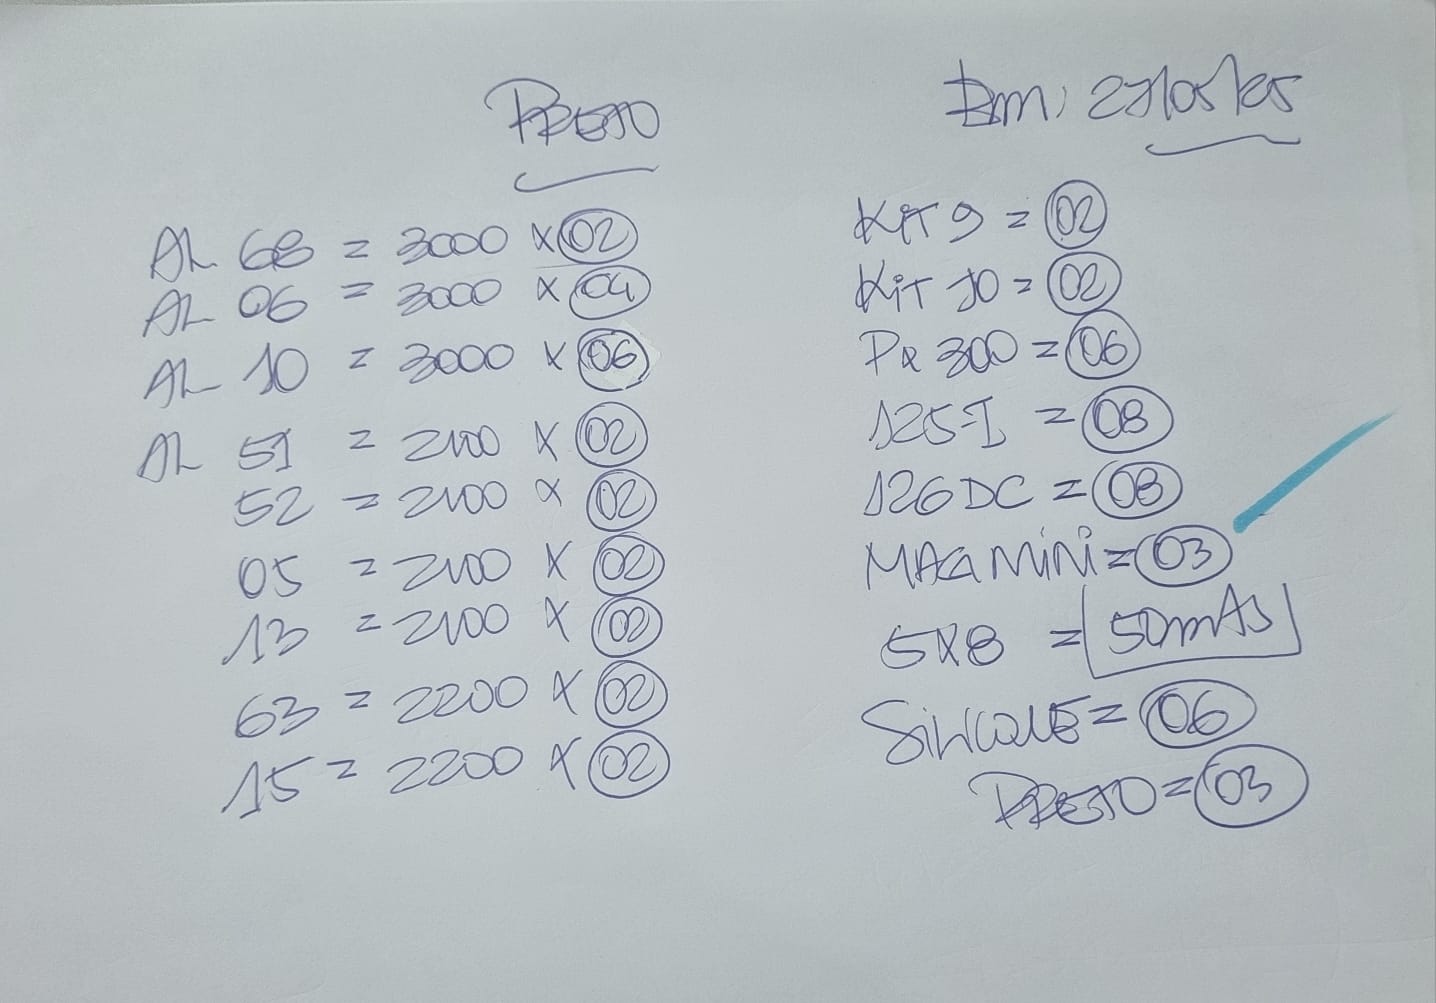 PRETO
Em, 27/05/25
AL 68 = 3000 x 02
AL 06 = 3000 x 04
AL 10 = 3000 x 06
AL 51 = 2100 x 02
52 = 2100 x 02
05 = 2100 x 02
13 = 2100 x 02
63 = 2200 x 02
15 = 2200 x 02
Kit 9 = 02
Kit 10 = 02
300 = 06
125-I = 08
126 DC = 08
MAG MiNi = 03
5x8 = 50mts
SiLiCONE = 06
PRETO = 03